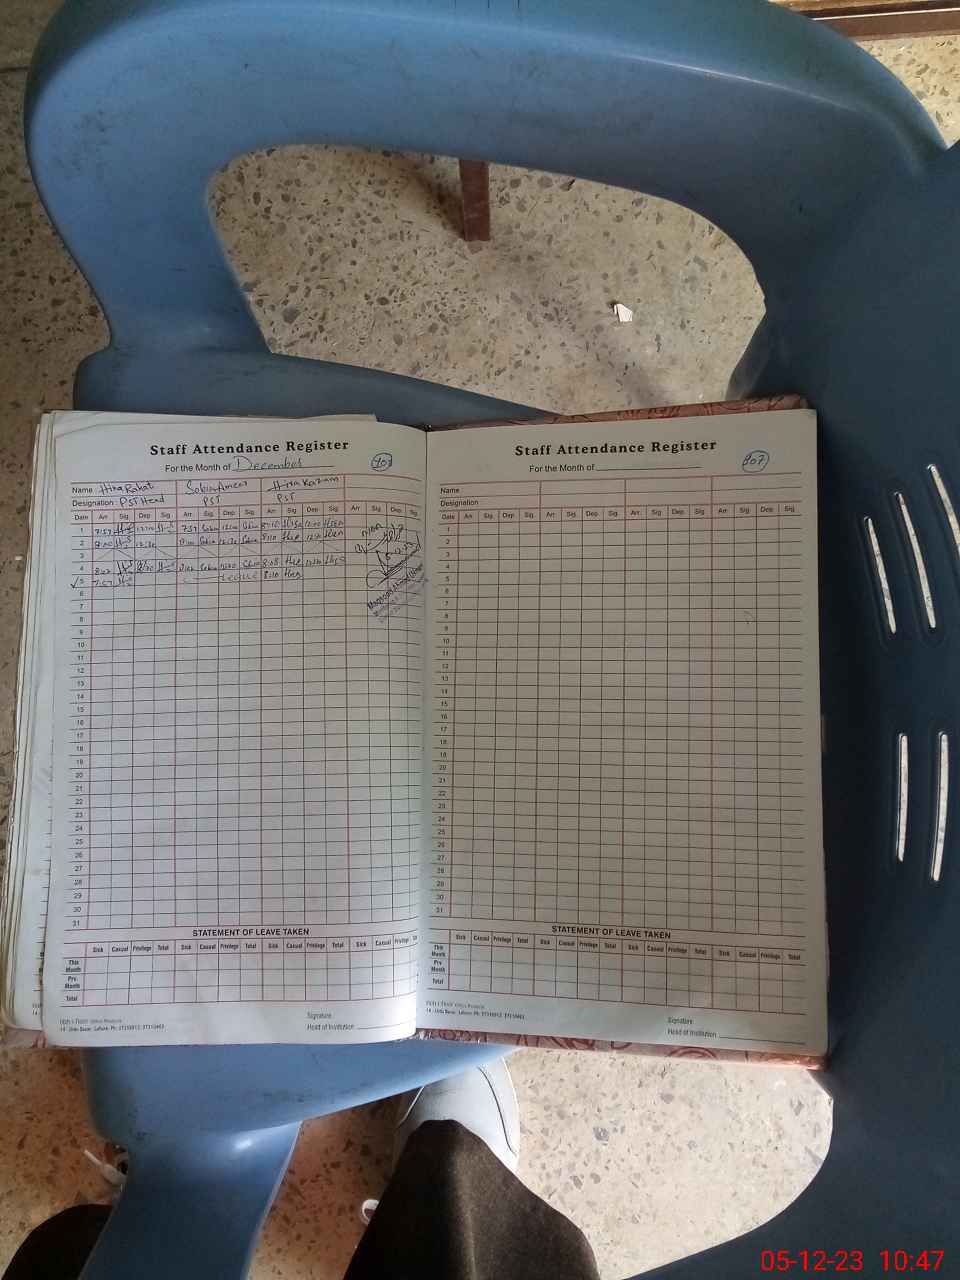 Staff Attendance Register
For the Month of December
Name : Hira Rahat Sobia Ameer Hira Kazam
Designation : PST Head PST PST
Date Arr Sig. Dep Sig. Arr Sig. Dep Sig. Arr Sig. Dep. Sig. Arr. Sig. Dep. Sig
1 7:57 12:00 7:59 Sobia 12:00 Sobia 8:10 Hira 12:00 Hira
2 8:00 12:30 8:00 Sobia 12:30 Sobia 8:10 Hira Hira
3
4 Sobia Sobia 8:08 Hira
5 7:57 Leave 8:10 Hira
6
7
8
9
10
11
12
13
14
15
16
17
18
19
20
21
22
23
24
25
26
27
28
29
30
31
STATEMENT OF LEAVE TAKEN
Sick Casual Privilege Total Sick Casual Privilege Total Sick Casual Privilege Total Sick Casual Privilege
This Month
Prv Month
Total
14 - Urdu Bazar, Lahore.
Signature
Head of Institution
Staff Attendance Register
For the Month of
307
Name
Designation
Date Arr. Sig. Dep Sig. Arr. Sig. Dep. Sig. Arr. Sig. Dep. Sig. Arr. Sig. Dep. Sig.
1
2
3
4
5
6
7
8
9
10
11
12
13
14
15
16
17
18
19
20
21
22
23
24
25
26
27
28
29
30
31
STATEMENT OF LEAVE TAKEN
Sick Casual Privilege Total Sick Casual Privilege Total Sick Casual Privilege Total Sick Casual Privilege Total
This Month
Prv Month
Total
14 - Urdu Bazar, Lahore.
Signature
Head of Institution
05-12-23 10:47